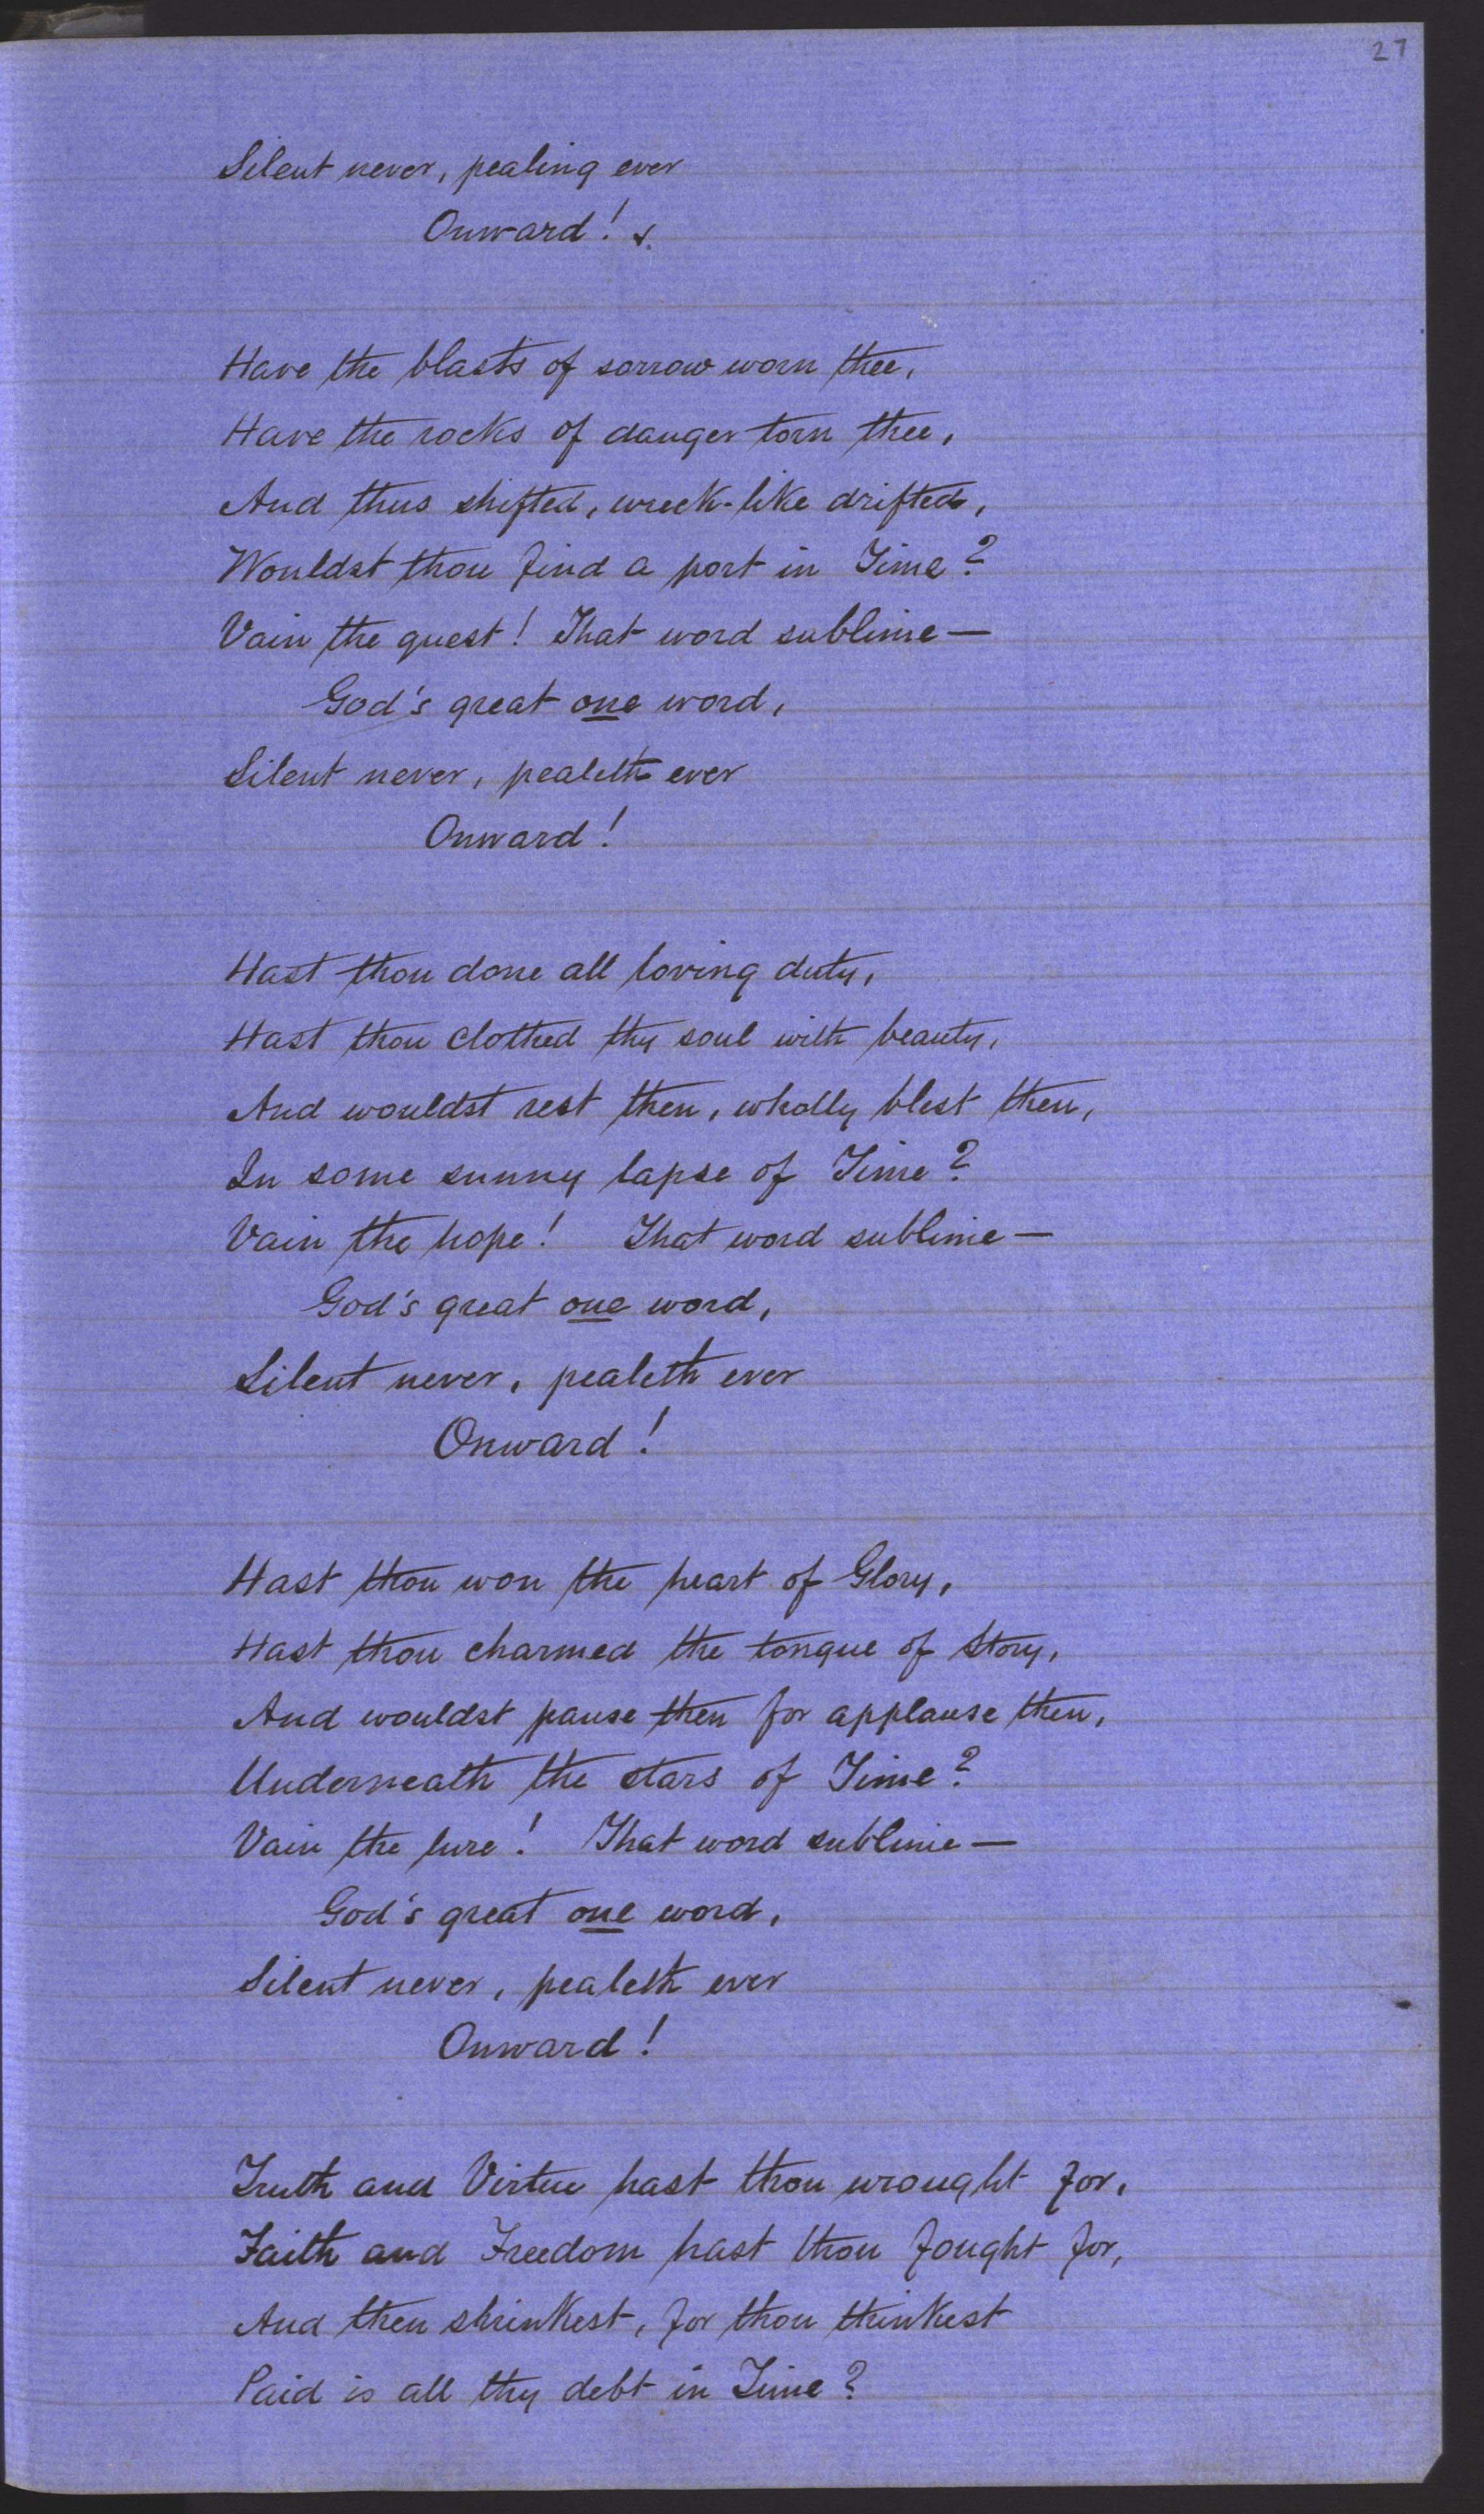 27
Silent never, pealing ever
Onward!
Have the blasts of sorrow worn thee,
Have the rocks of danger torn thee,
And thus shifted, wreck-like drifted,
Wouldst thou find a port in Time?
Vain the quest! That word sublime—
God's great one word,
Silent never, pealeth ever
Onward!
Hast thou done all loving duty,
Hast thou clothed thy soul with beauty,
And wouldst rest then, wholly blest then,
In some sunny lapse of Time?
Vain the hope! That word sublime—
God's great one word,
Silent never, pealeth ever
Onward!
Hast thou won the heart of Glory,
Hast thou charmed the tongue of Story,
And wouldst pause then for applause then,
Underneath the stars of Time?
Vain the lure! That word sublime—
God's great one word,
Silent never, pealeth ever
Onward!
Truth and Virtue hast thou wrought for,
Faith and Freedom hast thou fought for,
And then shrinkest, for thou thinkest
Paid is all thy debt in Time?